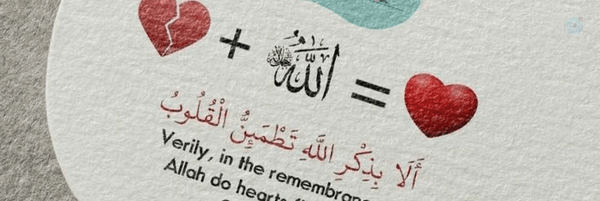 + الله =
أَلَا بِذِكْرِ اللَّهِ تَطْمَئِنُّ الْقُلُوبُ
Verily, in the
Allah do hearts